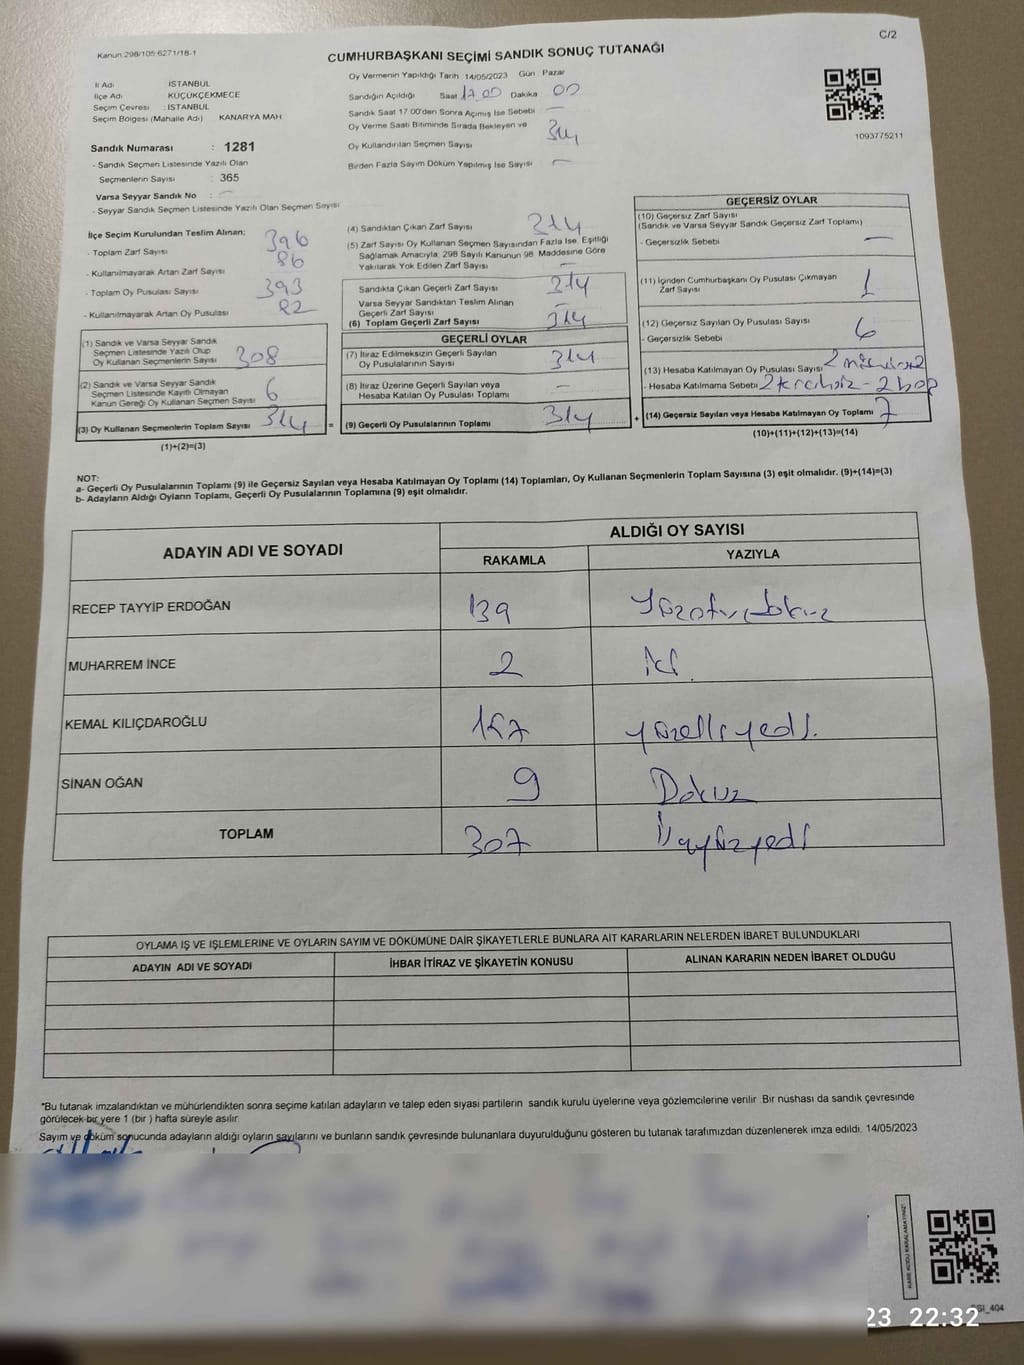 C/2
Kanun 298/105 6271/18-1
CUMHURBAŞKANI SEÇİMİ SANDIK SONUÇ TUTANAĞI
İl Adı İSTANBUL
İlçe Adı KÜÇÜKÇEKMECE
Seçim Çevresi : İSTANBUL
Seçim Bölgesi (Mahalle Adı) KANARYA MAH
Oy Vermenin Yapıldığı Tarih 14/05/2023 Gün : Pazar
Sandığın Açıldığı Saat 17.00 Dakika 00
Sandık Saat 17.00'den Sonra Açılmış İse Sebebi —
Oy Verme Saati Bitiminde Sırada Bekleyen ve
Oy Kullandırılan Seçmen Sayısı 314
Birden Fazla Sayım Döküm Yapılmış İse Sayısı —
1093775211
Sandık Numarası : 1281
- Sandık Seçmen Listesinde Yazılı Olan
Seçmenlerin Sayısı : 365
Varsa Seyyar Sandık No : —
- Seyyar Sandık Seçmen Listesinde Yazılı Olan Seçmen Sayısı
İlçe Seçim Kurulundan Teslim Alınan;
- Toplam Zarf Sayısı 396
- Kullanılmayarak Artan Zarf Sayısı 86
- Toplam Oy Pusulası Sayısı 393
- Kullanılmayarak Artan Oy Pusulası 82
(1) Sandık ve Varsa Seyyar Sandık
Seçmen Listesinde Yazılı Olup
Oy Kullanan Seçmenlerin Sayısı 308
(2) Sandık ve Varsa Seyyar Sandık
Seçmen Listesinde Kayıtlı Olmayan
Kanun Gereği Oy Kullanan Seçmen Sayısı 6
(3) Oy Kullanan Seçmenlerin Toplam Sayısı 314
(1)+(2)=(3)
(4) Sandıktan Çıkan Zarf Sayısı 314
(5) Zarf Sayısı Oy Kullanan Seçmen Sayısından Fazla İse, Eşitliği
Sağlamak Amacıyla, 298 Sayılı Kanunun 98. Maddesine Göre
Yakılarak Yok Edilen Zarf Sayısı —
Sandıkta Çıkan Geçerli Zarf Sayısı 314
Varsa Seyyar Sandıktan Teslim Alınan
Geçerli Zarf Sayısı —
(6) Toplam Geçerli Zarf Sayısı 314
GEÇERLİ OYLAR
(7) İtiraz Edilmeksizin Geçerli Sayılan
Oy Pusulalarının Sayısı 314
(8) İtiraz Üzerine Geçerli Sayılan veya
Hesaba Katılan Oy Pusulası Toplamı —
= (9) Geçerli Oy Pusulalarının Toplamı 314
GEÇERSİZ OYLAR
(10) Geçersiz Zarf Sayısı
(Sandık ve Varsa Seyyar Sandık Geçersiz Zarf Toplamı)
- Geçersizlik Sebebi —
(11) İçinden Cumhurbaşkanı Oy Pusulası Çıkmayan
Zarf Sayısı 1
(12) Geçersiz Sayılan Oy Pusulası Sayısı 6
- Geçersizlik Sebebi
(13) Hesaba Katılmayan Oy Pusulası Sayısı 2 mühürsüz
- Hesaba Katılmama Sebebi 2 tercihsiz - 2 boş
+ (14) Geçersiz Sayılan veya Hesaba Katılmayan Oy Toplamı 7
(10)+(11)+(12)+(13)=(14)
NOT:
a- Geçerli Oy Pusulalarının Toplamı (9) ile Geçersiz Sayılan veya Hesaba Katılmayan Oy Toplamı (14) Toplamları, Oy Kullanan Seçmenlerin Toplam Sayısına (3) eşit olmalıdır. (9)+(14)=(3)
b- Adayların Aldığı Oyların Toplamı, Geçerli Oy Pusulalarının Toplamına (9) eşit olmalıdır.
ADAYIN ADI VE SOYADI ALDIĞI OY SAYISI
RAKAMLA YAZIYLA
RECEP TAYYİP ERDOĞAN 139 Yüzotuzdokuz
MUHARREM İNCE 2 iki
KEMAL KILIÇDAROĞLU 157 yüzelliyedi.
SİNAN OĞAN 9 Dokuz
TOPLAM 307 Üçyüzyedi
OYLAMA İŞ VE İŞLEMLERİNE VE OYLARIN SAYIM VE DÖKÜMÜNE DAİR ŞİKAYETLERLE BUNLARA AİT KARARLARIN NELERDEN İBARET BULUNDUKLARI
ADAYIN ADI VE SOYADI İHBAR İTİRAZ VE ŞİKAYETİN KONUSU ALINAN KARARIN NEDEN İBARET OLDUĞU
*Bu tutanak imzalandıktan ve mühürlendikten sonra seçime katılan adayların ve talep eden siyasi partilerin sandık kurulu üyelerine veya gözlemcilerine verilir. Bir nushası da sandık çevresinde
görülecek bir yere 1 (bir ) hafta süreyle asılır.
Sayım ve döküm sonucunda adayların aldığı oyların sayılarını ve bunların sandık çevresinde bulunanlara duyurulduğunu gösteren bu tutanak tarafımızdan düzenlenerek imza edildi. 14/05/2023
KARE KODU KARALAMAYINIZ!
23 22:32